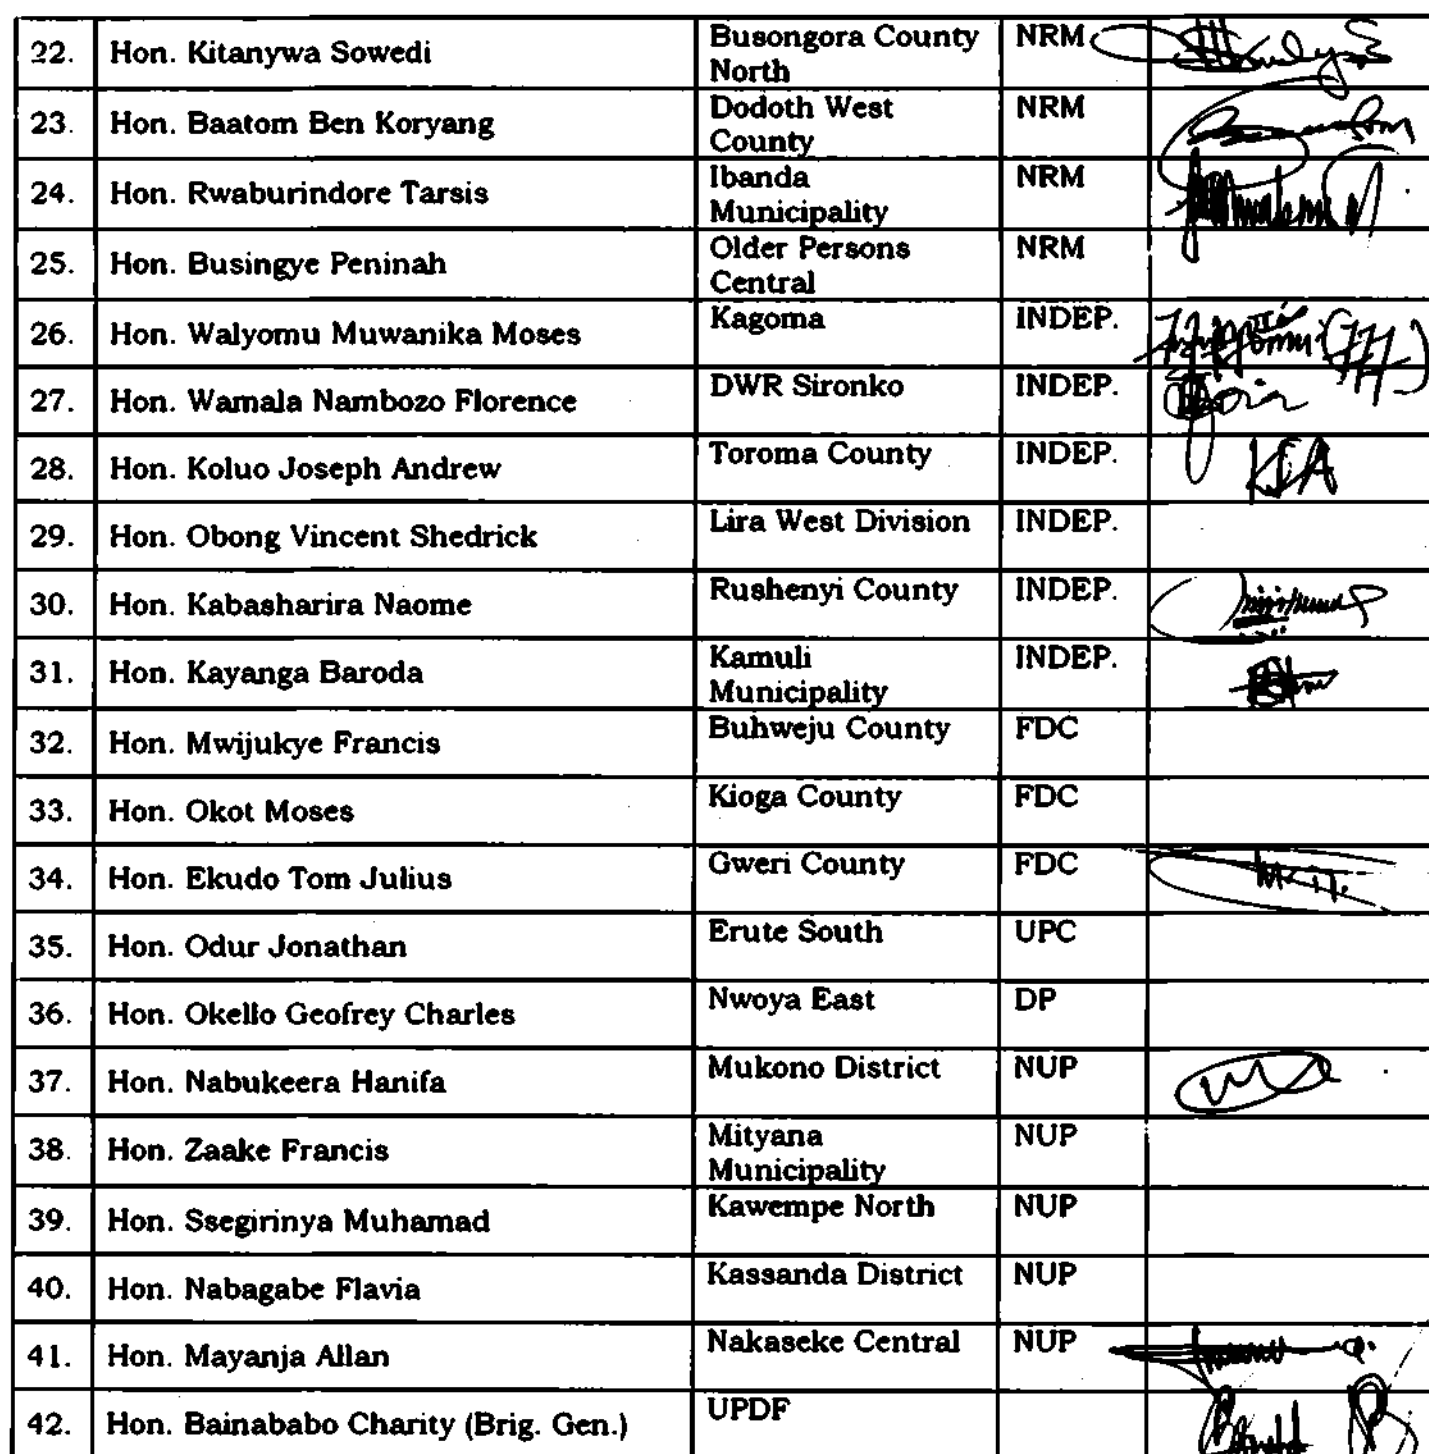 22. Hon. Kitanywa Sowedi Busongora County North NRM
23. Hon. Baatom Ben Koryang Dodoth West County NRM
24. Hon. Rwaburindore Tarsis Ibanda Municipality NRM
25. Hon. Busingye Peninah Older Persons Central NRM
26. Hon. Walyomu Muwanika Moses Kagoma INDEP.
27. Hon. Wamala Nambozo Florence DWR Sironko INDEP.
28. Hon. Koluo Joseph Andrew Toroma County INDEP. KJA
29. Hon. Obong Vincent Shedrick Lira West Division INDEP.
30. Hon. Kabasharira Naome Rushenyi County INDEP.
31. Hon. Kayanga Baroda Kamuli Municipality INDEP.
32. Hon. Mwijukye Francis Buhweju County FDC
33. Hon. Okot Moses Kioga County FDC
34. Hon. Ekudo Tom Julius Gweri County FDC
35. Hon. Odur Jonathan Erute South UPC
36. Hon. Okello Geofrey Charles Nwoya East DP
37. Hon. Nabukeera Hanifa Mukono District NUP
38. Hon. Zaake Francis Mityana Municipality NUP
39. Hon. Ssegirinya Muhamad Kawempe North NUP
40. Hon. Nabagabe Flavia Kassanda District NUP
41. Hon. Mayanja Allan Nakaseke Central NUP
42. Hon. Bainababo Charity (Brig. Gen.) UPDF